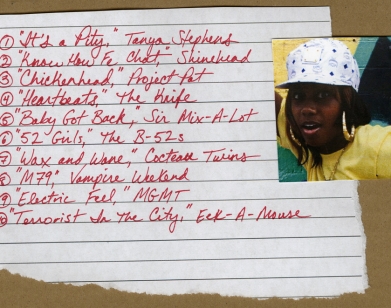 ① "It's a Pity," Tanya Stephens
② "Know How Fe Chat," Shinehead
③ "Chickenhead," Project Pat
④ "Heartbeats," The Knife
⑤ "Baby Got Back," Sir Mix-A-Lot
⑥ "52 Girls," The B-52s
⑦ "Wax and Wane," Cocteau Twins
⑧ "M79," Vampire Weekend
⑨ "Electric Feel," MGMT
⑩ "Terrorist In The City," Eek-A-Mouse